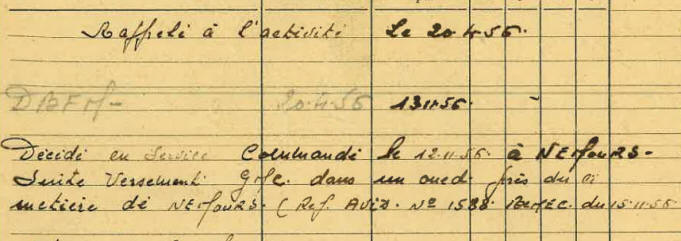 Rappelé à l'activité Le 20.4.56.
DBFM - 20.4.56 13.11.56. -
Décédé en Service Commandé le 12.11.56. à NEMOURS -
Suite Versement GMC. dans un oued près du Ci
metière de NEMOURS. (Ref. Avis. N° 1588 du 15.11.56